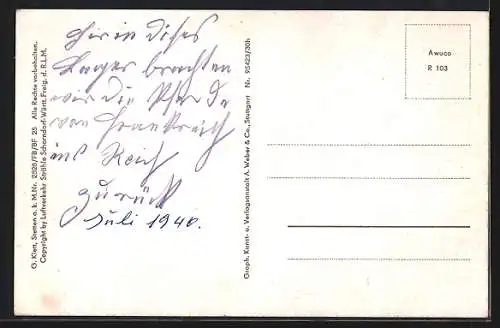 hier in dieses
Lager brachten
wir die Pferde
von Frankreich
ins Reich
zurück
Juli 1940.
O. Klett, Stetten a. k. M. Nr. 2528/FB/BF 25 Alle Rechte vorbehalten.
Copyright by Luftverkehr Strähle Schorndorf-Württ. Freig. d. R.L.M.
Graph. Kunst- u. Verlagsanstalt A. Weber & Co., Stuttgart Nr. 95423/30h
Awuco
R 103